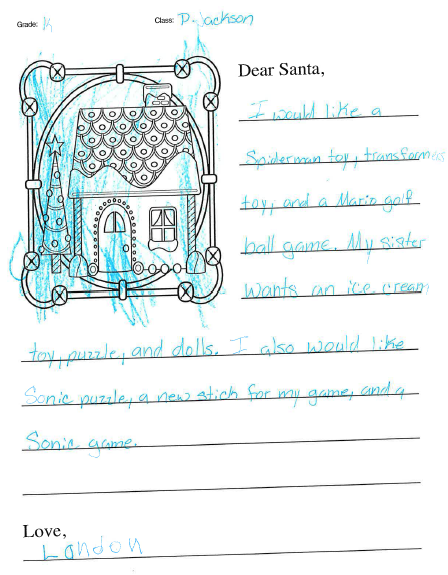 Grade: K
Class: P-Jackson
Dear Santa,
I would like a
Spiderman toy, transformess
toy, and a Mario golf
ball game. My sister
wants an ice cream
toy, puzzle, and dolls. I also would like
Sonic puzzle, a new stich for my game, and a
Sonic game.
Love,
London